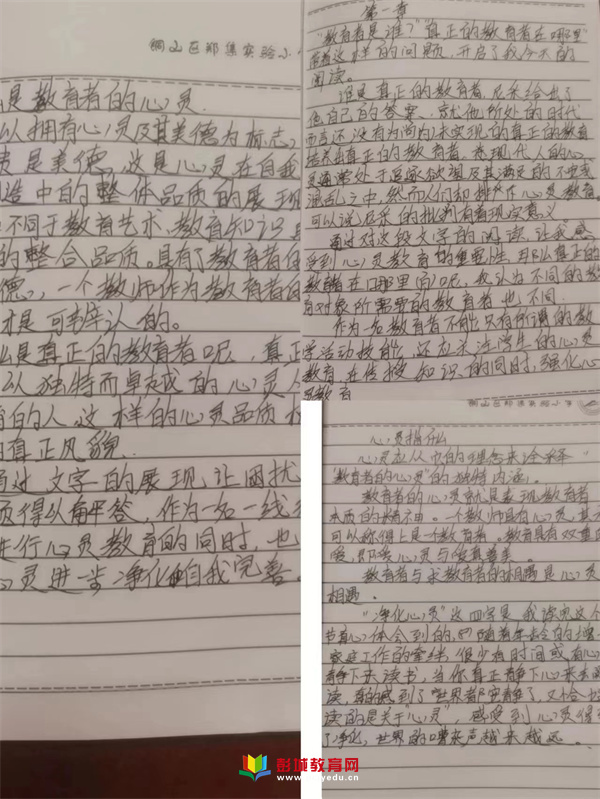 铜山区郑集实验小
是教育者的心灵
以拥有心灵及其美德为标志,
质是美德,这是心灵在自我
造中的整体品质的展现
不同于教育艺术、教育知识
的整合品质。具有了教育者的
德,一个教师作为教育者的
才是可辨认的。
么是真正的教育者呢,真正
以独特而卓越的心灵
的人,这样的心灵品质
真正风貌
过文字的展现,让困扰
得以解答,作为一名一线
进行心灵教育的同时,也
心灵进一步净化和自我完善。
第一章
“教育者是谁?”“真正的教育者在哪里”
带着这样的问题,开启了我今天的
阅读。
谁是真正的教育者,尼采给出了
他自己的答案,就他所处的时代
而言还没有为尚内未实现的真正的教育
培养出真正的教育者,表现代人的心
灵通常处于追逐欲望及其满足的
混乱之中,然而人们却排斥心灵教育。
可以说尼采的批判有着现实意义
通过对这段文字的阅读,让我感
受到心灵教育的重要性,那么真正的
教育者在哪里面呢,我认为不同的教
育对象所需要的教育者也不同.
作为一名教育者不能只有所谓的教
学活动技能,还应关注学生的心灵
教育,在传授知识的同时,强化心
灵教育
铜山区郑集实验小学
心灵
心灵应从中的理念来诠释
“教育者的心灵”的独特内涵。
教育者的心灵就是表现教育者
本质的精神。一个教师具有心灵,其
可以称得上是一个教育者。教育具有双重的
爱,即爱心灵与爱真善美。
教育者与求教育者的相遇是心灵
相遇。
“净化心灵”这四字是我读完这个
节真心体会到的,随着年龄的增
家庭工作的牵绊,很少有时间或有心
静下来读书,当你真正静下心来去
读,真的感到了世界都安静了,又恰
读的是关于“心灵”,感受到心灵得
了净化,世界的嘈杂声越来越远。
彭城教育网
www.pyedu.cn